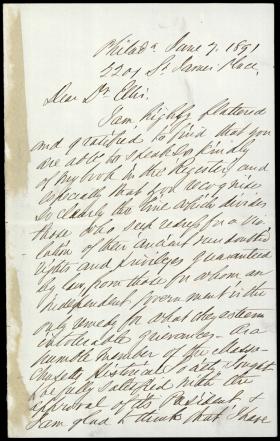 Philad'a June 7. 1891
2201 St. James Place,
Dear Dr Ellis.
I am highly flattered
and gratified to find that you
are able to speak so kindly
of my book in the Register, and
especially that you recognise
so clearly the line which divides
those who seek redress for a vio-
lation of their ancient undoubted
rights and privileges guaranteed
by law, from those for whom an
independent government is the
only remedy for what they esteem
intolerable grievances. As a
humble member of the Massa-
chusetts Historical Society I ought
to be fully satisfied with the
approval of its President &
I am glad to think that I have